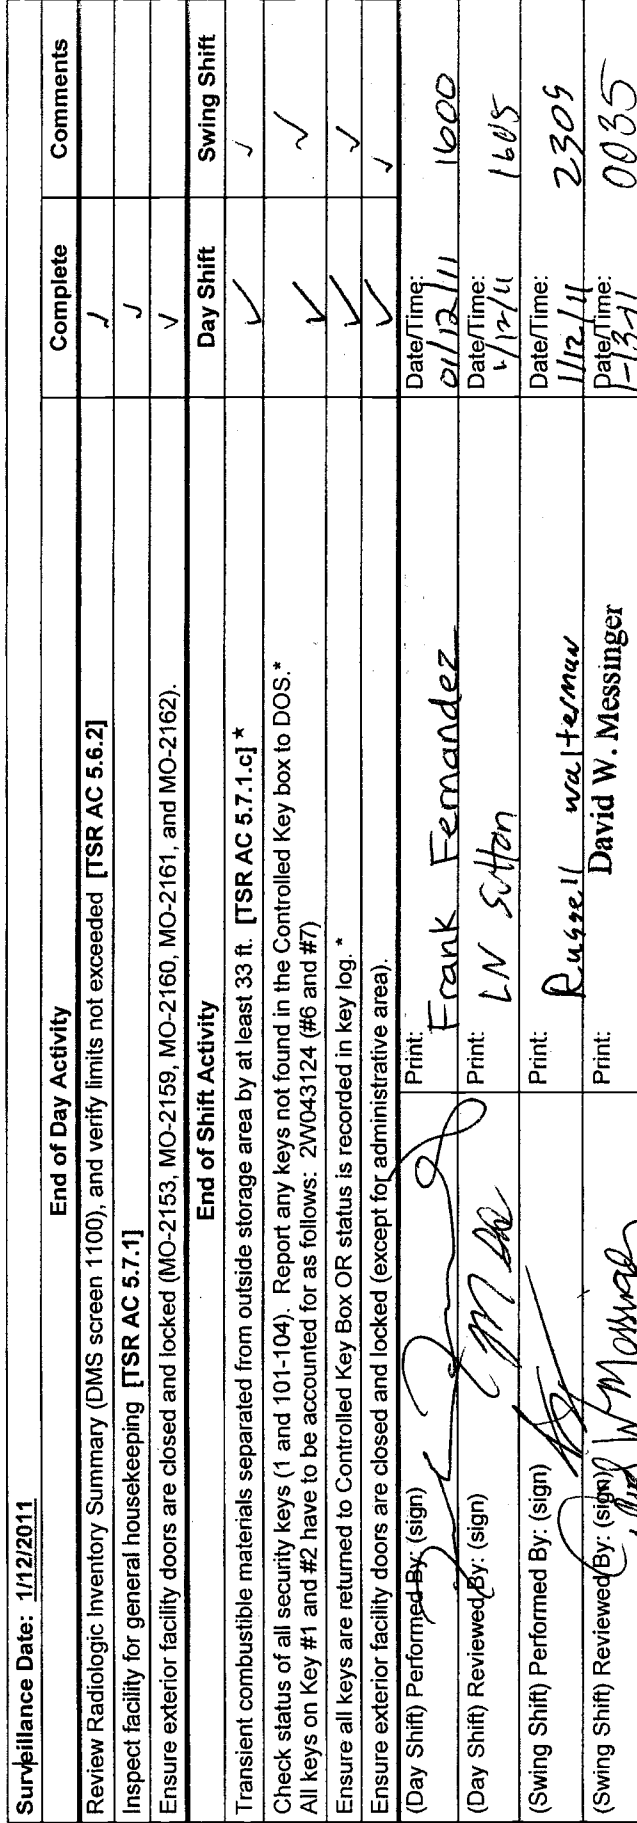 Surveillance Date: 1/12/2011
End of Day Activity Complete Comments
Review Radiologic Inventory Summary (DMS screen 1100), and verify limits not exceeded [TSR AC 5.6.2] ✓
Inspect facility for general housekeeping [TSR AC 5.7.1] ✓
Ensure exterior facility doors are closed and locked (MO-2153, MO-2159, MO-2160, MO-2161, and MO-2162). ✓
End of Shift Activity Day Shift Swing Shift
Transient combustible materials separated from outside storage area by at least 33 ft. [TSR AC 5.7.1.c] * ✓ ✓
Check status of all security keys (1 and 101-104). Report any keys not found in the Controlled Key box to DOS.*
All keys on Key #1 and #2 have to be accounted for as follows: 2W043124 (#6 and #7) ✓ ✓
Ensure all keys are returned to Controlled Key Box OR status is recorded in key log. * ✓ ✓
Ensure exterior facility doors are closed and locked (except for administrative area). ✓ ✓
(Day Shift) Performed By: (sign) Print: Frank Fernandez Date/Time: 01/12/11 1600
(Day Shift) Reviewed By: (sign) Print: LN Sutton Date/Time: 1/12/11 1605
(Swing Shift) Performed By: (sign) Print: Russell Walterman Date/Time: 1/12/11 2309
(Swing Shift) Reviewed By: (sign) Print: David W. Messinger Date/Time: 1-13-11 0035